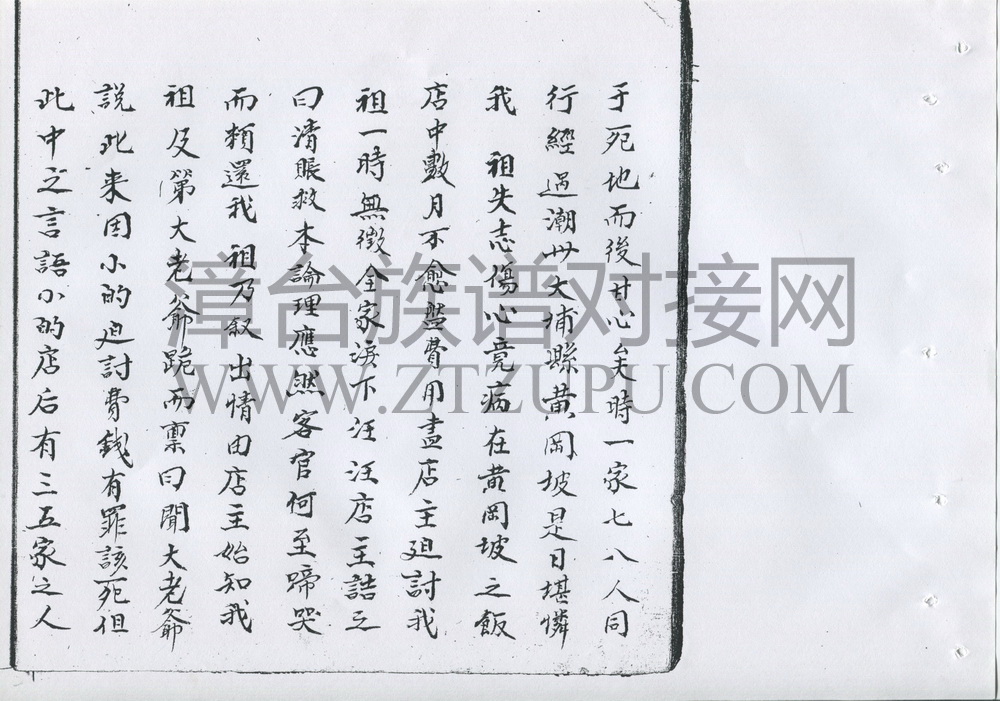 于死地而後甘心矣時一家七八人同
行經過潮州大埔縣黃岡坡是日堪憐
我 祖失志傷心竟病在黃岡坡之飯
店中數月不愈盤費用盡店主廹討我
祖一時無徵全家淚下汪汪店主誥之
曰清賬救本論理應然客官何至啼哭
而賴還我 祖乃叙出情由店主始知我
祖及第大老爺跪而禀曰聞大老爺
說此来因小的廹討費錢有罪該死但
此中之言語小的店后有三五家之人
漳台族谱对接网
WWW.ZTZUPU.COM